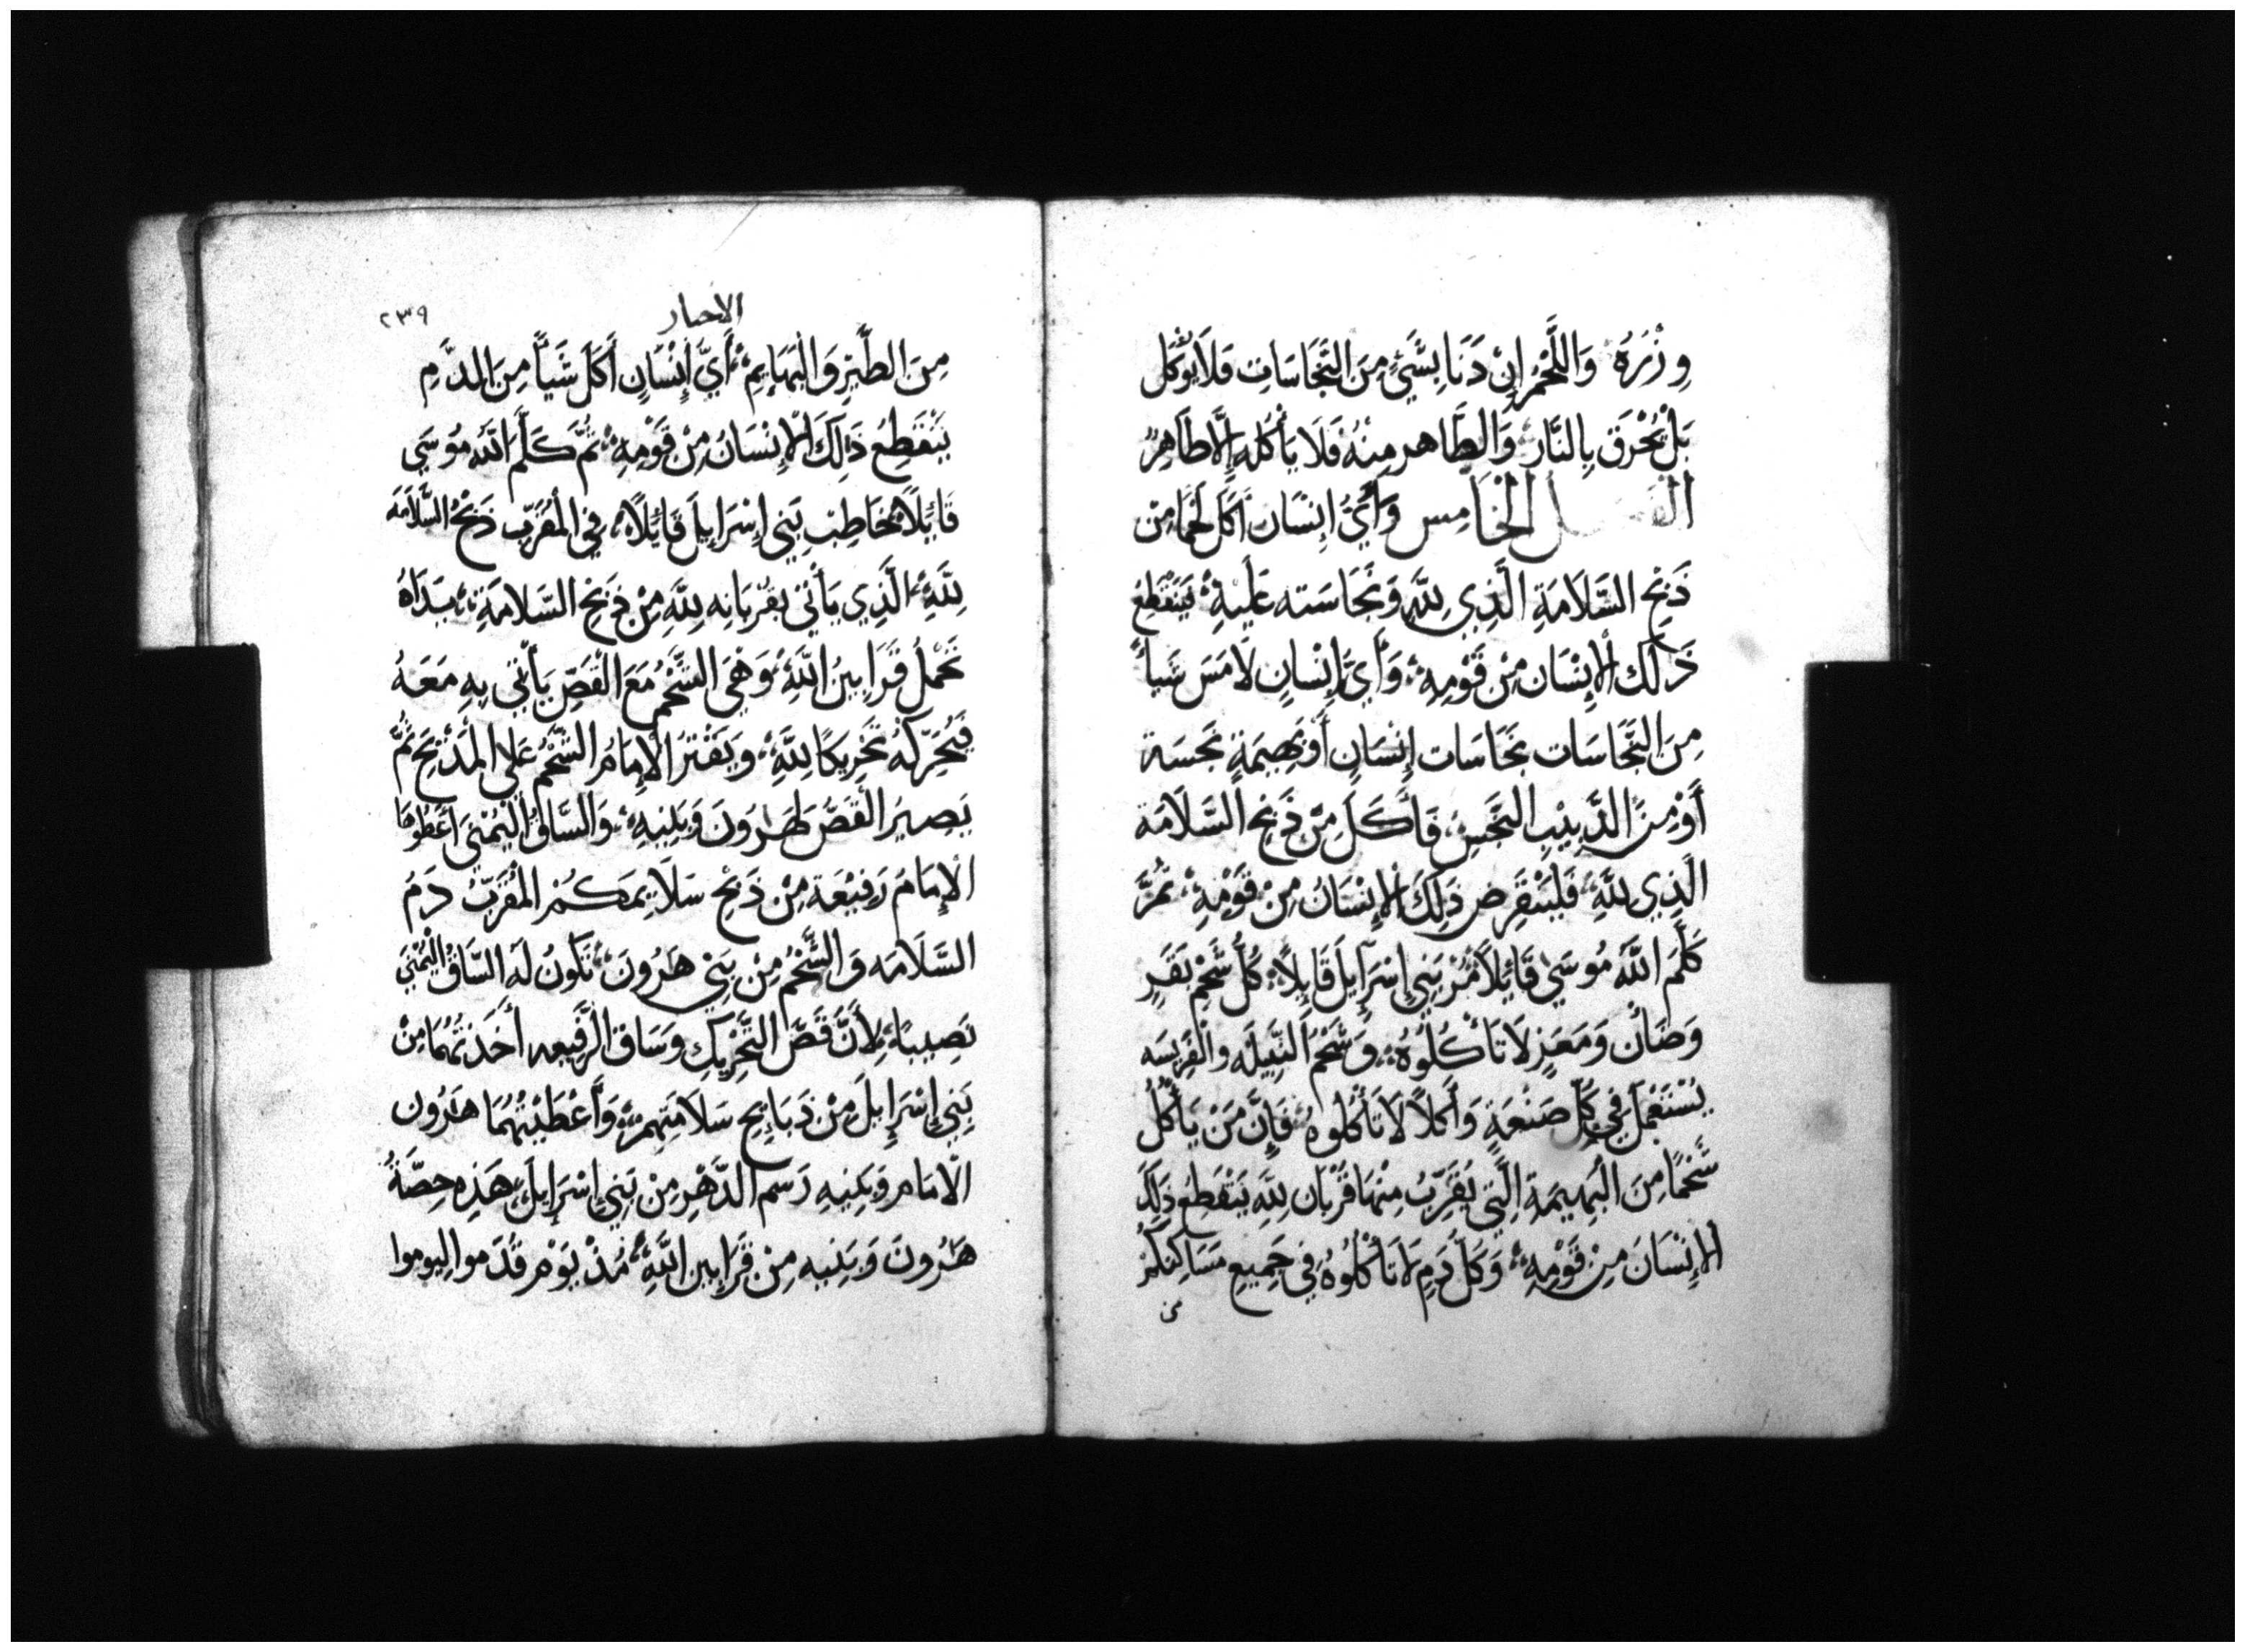 وِزْرَهُ وَاللَّحْمُ إِنْ دَنَا بِشَيْءٍ مِنَ النَّجَاسَاتِ فَلَا يُؤْكَل
بَلْ يُحْرَق بِالنَّارِ وَالطَّاهر مِنْهُ فَلَا يَأْكُلهِ إِلَّا طَاهِرٌ
الفصل الخَامِس وَأَيُّ إِنْسَان أَكَل لَحْمًا مِنْ
ذَبْحِ السَّلَامَةِ الَّذِي لِلَّهِ وَنَجَاسَته عَلَيْهِ يَنْقَطِع
ذَلِكَ الإِنْسَان مِنْ قَوْمِهِ وَأَيُّ إِنْسَانٍ لَامَسَ شَيأً
مِنَ النَّجَاسَات نَجَاسَات إِنْسَانٍ أَوْ بَهِيمَةٍ نَجِسَة
أَوْ مِنَ الدَّبِيْبِ النَّجِسِ فَأَكَلَ مِنْ ذَبْحِ السَّلَامَة
الَّذِي لِلَّهِ فَلْيَنْقَرِض ذَلِكَ الإِنْسَانُ مِنْ قَوْمِهِ ثُمَّ
كَلَّمَ اللَّهُ مُوسَى قَائِلاً مُرْ بَنِي إِسْرَآيِلَ قَايِلاً كُلُّ شَحْمِ بَقَرٍ
وَضَأْن وَمَعَزٍ لَا تَأْكُلُوهُ وَشَحْمُ النَّبِيلَه وَالفَرِيسَه
يُسْتَعْمَلُ فِي كُلِّ صَنْعَةٍ وَأَكْلاً لَا تَأْكُلُوهُ فَإِنَّ مَنْ يَأْكُلُ
شَحْمًا مِنَ الْبَهِيمَةِ الَّتِي يُقَرِّبُ مِنْهَا قُرْبَان لِلَّهِ يَنْقَطِعُ ذَلِكَ
الإِنْسَانَ مِنْ قَوْمِهِ وَكُلَّ دَمٍ لَا تَأْكُلُوهُ فِي جَمِيعِ مَسَاكِنكُمْ
من
الاحبار
٢٣٩
مِنَ الطَّيْرِ وَالْبَهَايِمِ أَيَّ إِنْسَانٍ أَكَلَ شَيَأً مِنَ الدَّمِ
يَنْقَطِعُ ذَلِكَ الإِنْسَانُ مِنْ قَوْمِهِ ثُمَّ كَلَّمَ اللَّهُ مُوسَى
قَائِلاً خَاطِب بَنِي إِسْرَايِلَ قَائِلاً فِي الْمُقَرِّب ذَبْحُ السَّلَامَه
لِلَّهِ الَّذِي يَأْتِي بقُرْبَانِه لِلَّهِ مِنْ ذَبْحِ السَّلَامَةِ يَدَاهُ
تَحْمِلُ قَرَابِينُ اللَّهِ وَهْيَ الشَّحْمُ مَعَ الْقَصِّ يَأْتِي بِهِ مَعَهُ
فَيُحَرِّكُهُ تَحْرِيكًا لِلَّهِ وَيُقَتِّرُ الإِمَامُ الشَّحْمُ عَلَى الْمَذْبَحِ ثُمَّ
يَصِيرُ القَصُّ لِهَرُونَ وَبَنِيهِ وَالسَّاقُ الْيُمْنَى أَعْطُوهَا
الإِمَامَ رَفِيْعَة مِنْ ذَبْحِ سَلَايِمَكُمْ الْمُقَرِّبُ دَمُ
السَّلَامَه وَالشَّحْمُ مِنْ بَنِي هَرُونَ تَكُونُ لَهُ السَّاقُ الْيُمْنَى
نَصِيبَاً لِأَنَّ قَصَّ التَّحْرِيكِ وَسَاقَ الرَّفِيعه أَخَذْتُهُمَا مِنْ
بَنِي إِسْرَايِلَ مِنْ ذَبَايِحِ سَلَامَتِهِمْ وَأَعْطَيْتُهُمَا هَرُون
الْامَام وَبَنِيهِ رَسْم الدَّهْرِ مِنْ بَنِي إِسْرَايِلَ هَذِه حِصَّةُ
هَرُونَ وَبَنِيه مِنْ قَرَابِين اللَّهِ مُذْ يَوْم قُدِّموا ليوموا